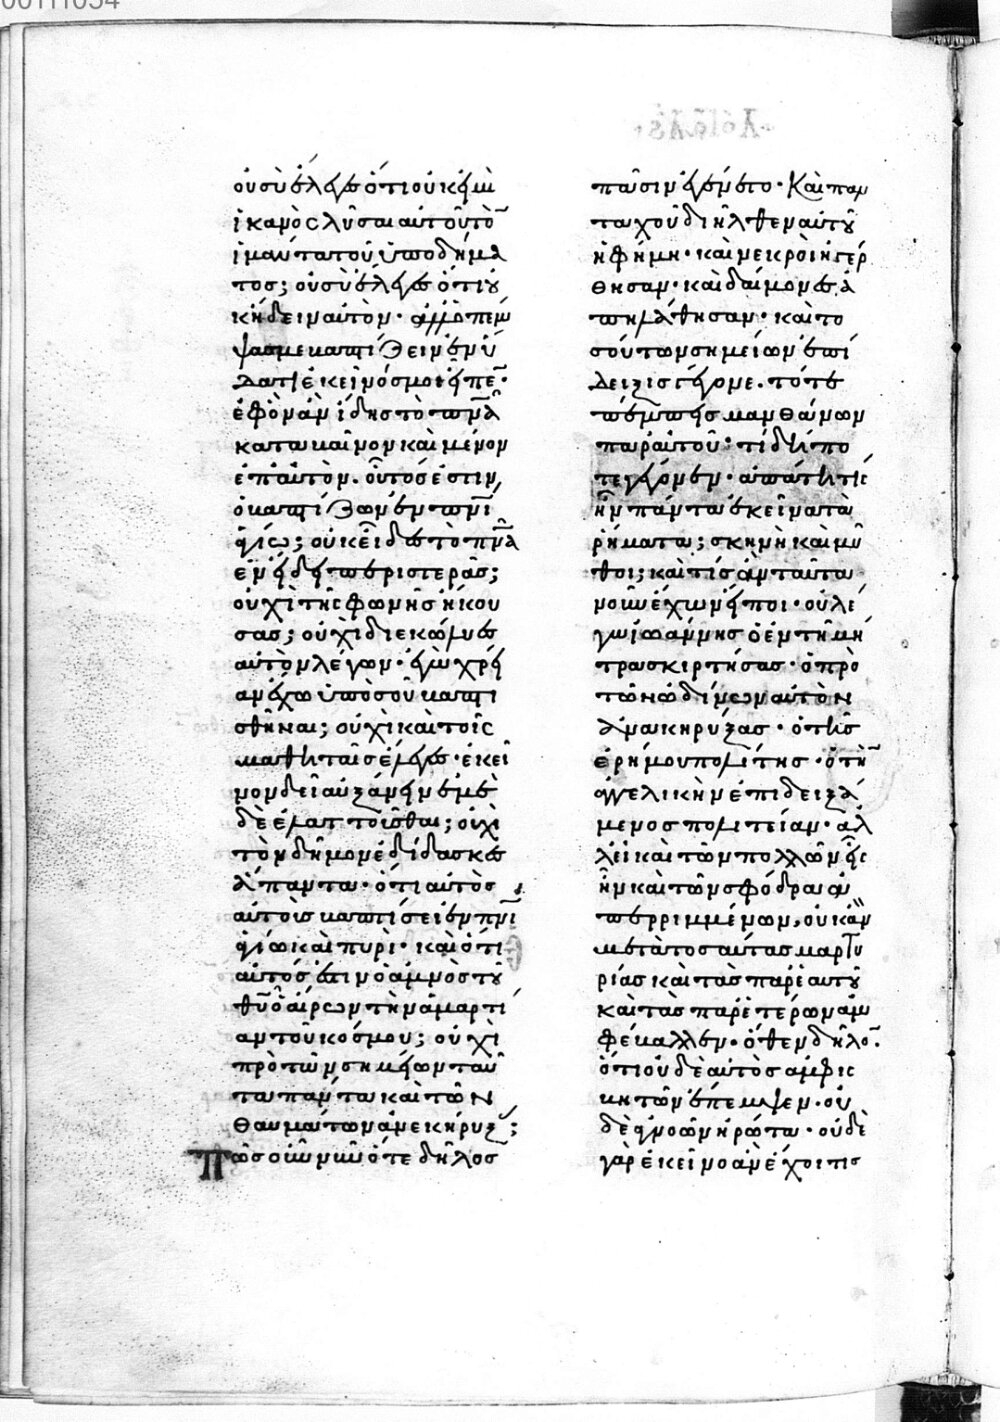 00111034
οὐ σὺ ἔλεγες ὅτι οὐκ εἰμὶ
ἱκανὸς λῦσαι αὐτοῦ τὸν
ἱμάντα τοῦ ὑποδήμα
τος; οὐ σὺ ἔλεγες ὅτι οὐ
κ ἤδειν αὐτὸν· ἀλλ' ὁ πέμ
ψας με βαπτίζειν ἐν ὕ
δατι ἐκεῖνός μοι εἶπε·
ἐφ' ὃν ἂν ἴδης τὸ πνα
καταβαῖνον καὶ μένον
ἐπ' αὐτὸν. οὗτός ἐστιν,
ὁ βαπτίζων ἐν πνι
ἁγίω; οὐκ εἶδες τὸ πνα
ἐν εἴδει περιστερᾶς;
οὐχὶ τῆς φωνῆς ἤκου
σας; οὐχὶ διεκώλυες
αὐτὸν λέγων· ἐγὼ χρεί
αν ἔχω ὑπὸ σοῦ βαπτι
σθῆναι; οὐχὶ καὶ τοῖς
μαθηταῖς ἔλεγες· ἐκεῖ
νον δεῖ αὐξάνειν ἐμὲ
δὲ ἐλαττοῦσθαι; οὐχὶ
τὸν δῆμον ἐδίδασκες
ἅπαντα· ὅτι αὐτὸς
αὐτοὺς βαπτίσει ἐν πνι
ἁγίω καὶ πυρί· καὶ ὅτι
αὐτός ἐστιν ὁ ἀμνὸς τοῦ
θυ ὁ αἴρων τὴν ἁμαρτί
αν τοῦ κόσμου; οὐχὶ
πρὸ τῶν σημείων ταῦ
τα πάντα καὶ τῶν
θαυμάτων ἀνεκήρυξ;
Πῶς οὖν νῦν ὅτε δῆλος
πᾶσιν ἐγένετο· Καὶ παν
ταχοῦ διῆλθεν αὐτοῦ
ἡ φήμη· καὶ νεκροὶ ἠγέρ
θησαν· καὶ δαίμονες ἀ
πηλάθησαν· καὶ το
σούτων σημείων ἐπί
δειξις γέγονε. τότε
πέμπεις μανθάνων
παρ' αὐτοῦ· τί δή πο
τε γέγονεν· ἀπάτη τις
ἦν πάντα ἐκεῖνα τὰ
ῥήματα; σκηνὴ καὶ μῦ
θοι; καὶ τίς ἂν ταῦτα
νοῦν ἔχων εἴποι· οὐ λέ
γω ἰωάννης ὁ ἐν τῆ μή
τρα σκιρτήσας· ὁ πρὸ
τῶν ὠδίνων αὐτὸν
ἀνακηρύξας· ὁ τῆς
ἐρήμου πολίτης· ὁ τὴν
ἀγγελικὴν ἐπιδειξά
μενος πολιτείαν· ἀλ
λ' εἰ καὶ τῶν πολλῶν εἷς
ἦν καὶ τῶν σφόδρα ἀ
περριμμένων, οὐκ ἂν
μετὰ τοσαύτας μαρτυ
ρίας καὶ τὰς παρ' ἑαυτοῦ
καὶ τὰς παρ' ἑτέρων ἀμ
φέβαλλεν· ὅθεν δῆλον.
ὅτι οὐδὲ αὐτὸς ἀμφισ
βητῶν ἔπεμψεν· οὐ
δὲ ἀγνοῶν ἠρώτα· οὐδὲ
γὰρ ἐκεῖνο ἂν ἔχοι τις